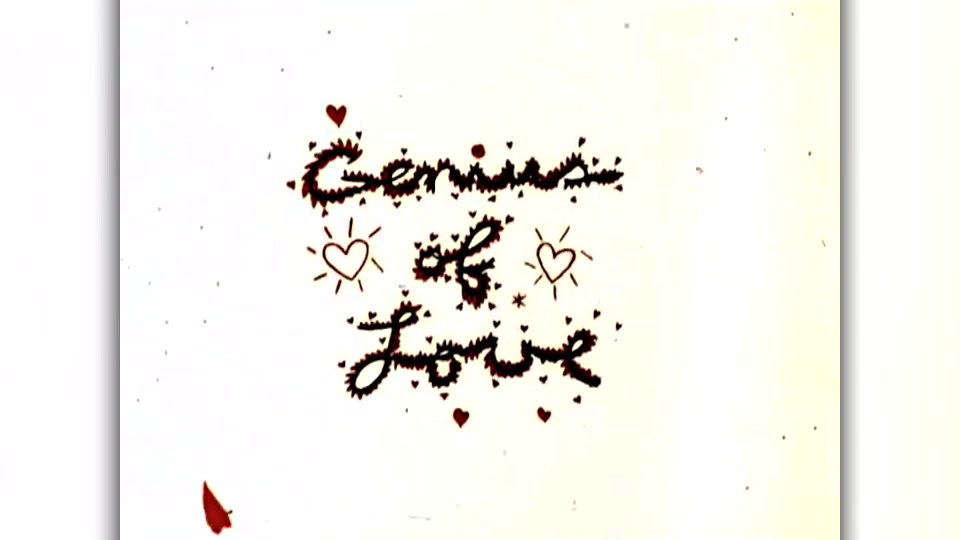 Genius
of
Love